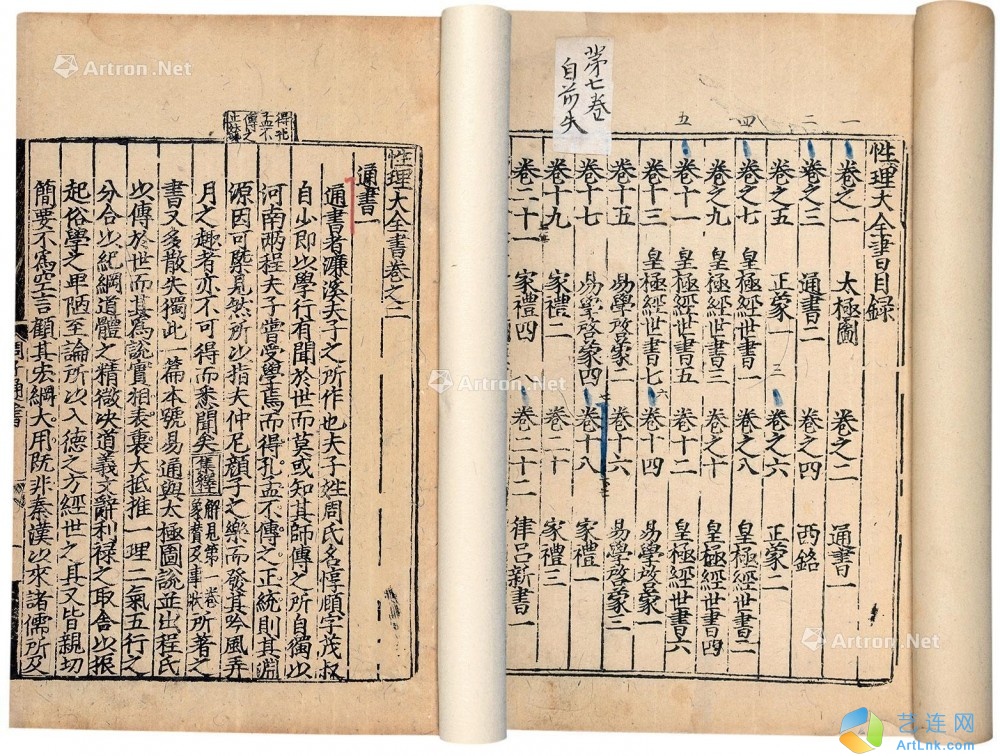 第七卷
自前失
一 二 四 五
性理大全書目錄
卷之一 太極圖 卷之二 通書一
卷之三 通書二 卷之四 西銘
卷之五 正蒙一 卷之六 正蒙二
卷之七 皇極經世書一 卷之八 皇極經世書二
卷之九 皇極經世書三 卷之十 皇極經世書四
卷十一 皇極經世書五 卷十二 皇極經世書六
卷十三 皇極經世書七 卷十四 易學啓蒙一
卷十五 易學啓蒙一 卷十六 易學啓蒙三
卷十七 易學啓蒙四 卷十八 家禮一
卷十九 家禮二 卷二十 家禮三
卷二十一 家禮四 卷二十二 律呂新書一
得孔
孟不
傳之
正統
性理大全書卷之二
通書一
通書者濂溪夫子之所作也夫子姓周氏名惇頤字茂叔
自少即以學行有聞於世而莫或知其師傳之所自獨以
河南兩程夫子嘗受學焉而得孔孟不傳之正統則其淵
源因可槩見然所以指夫仲尼顏子之樂而發其吟風弄
月之趣者亦不可得而悉聞矣集釋解見第一卷象贊及事狀所著之
書又多散失獨此一篇本號易通與太極圖說並出程氏
以傳於世而其為說實相表裏大抵推一理二氣五行之
分合以紀綱道體之精微決道義文辭利祿之取舍以振
起俗學之卑陋至論所以入德之方經世之具又皆親切
簡要不為空言顧其宏綱大用既非秦漢以來諸儒所及
周子通書
Artron.Net
Artron.Net
Artron.Net
Artron.Net
艺连网
ArtLnk.com